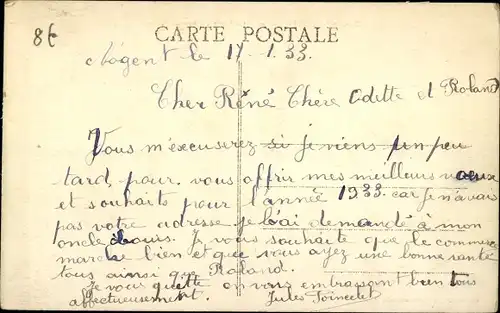 8€
CARTE POSTALE
Nogent le 17-1.33.
Cher Réné Chère Odette et Roland
Vous m'excuserez si je viens un peu
tard, pour vous offrir mes meilleurs vœux
et souhaits pour l'année 1933. car je n'avais
pas votre adresse je l'ai demandé à mon
oncle Louis. Je vous souhaite que le commerce
marche bien et que vous ayez une bonne santé
tous ainsi que Roland.
Je vous quitte en vous embrassant bien tous
affectueusement. Jules